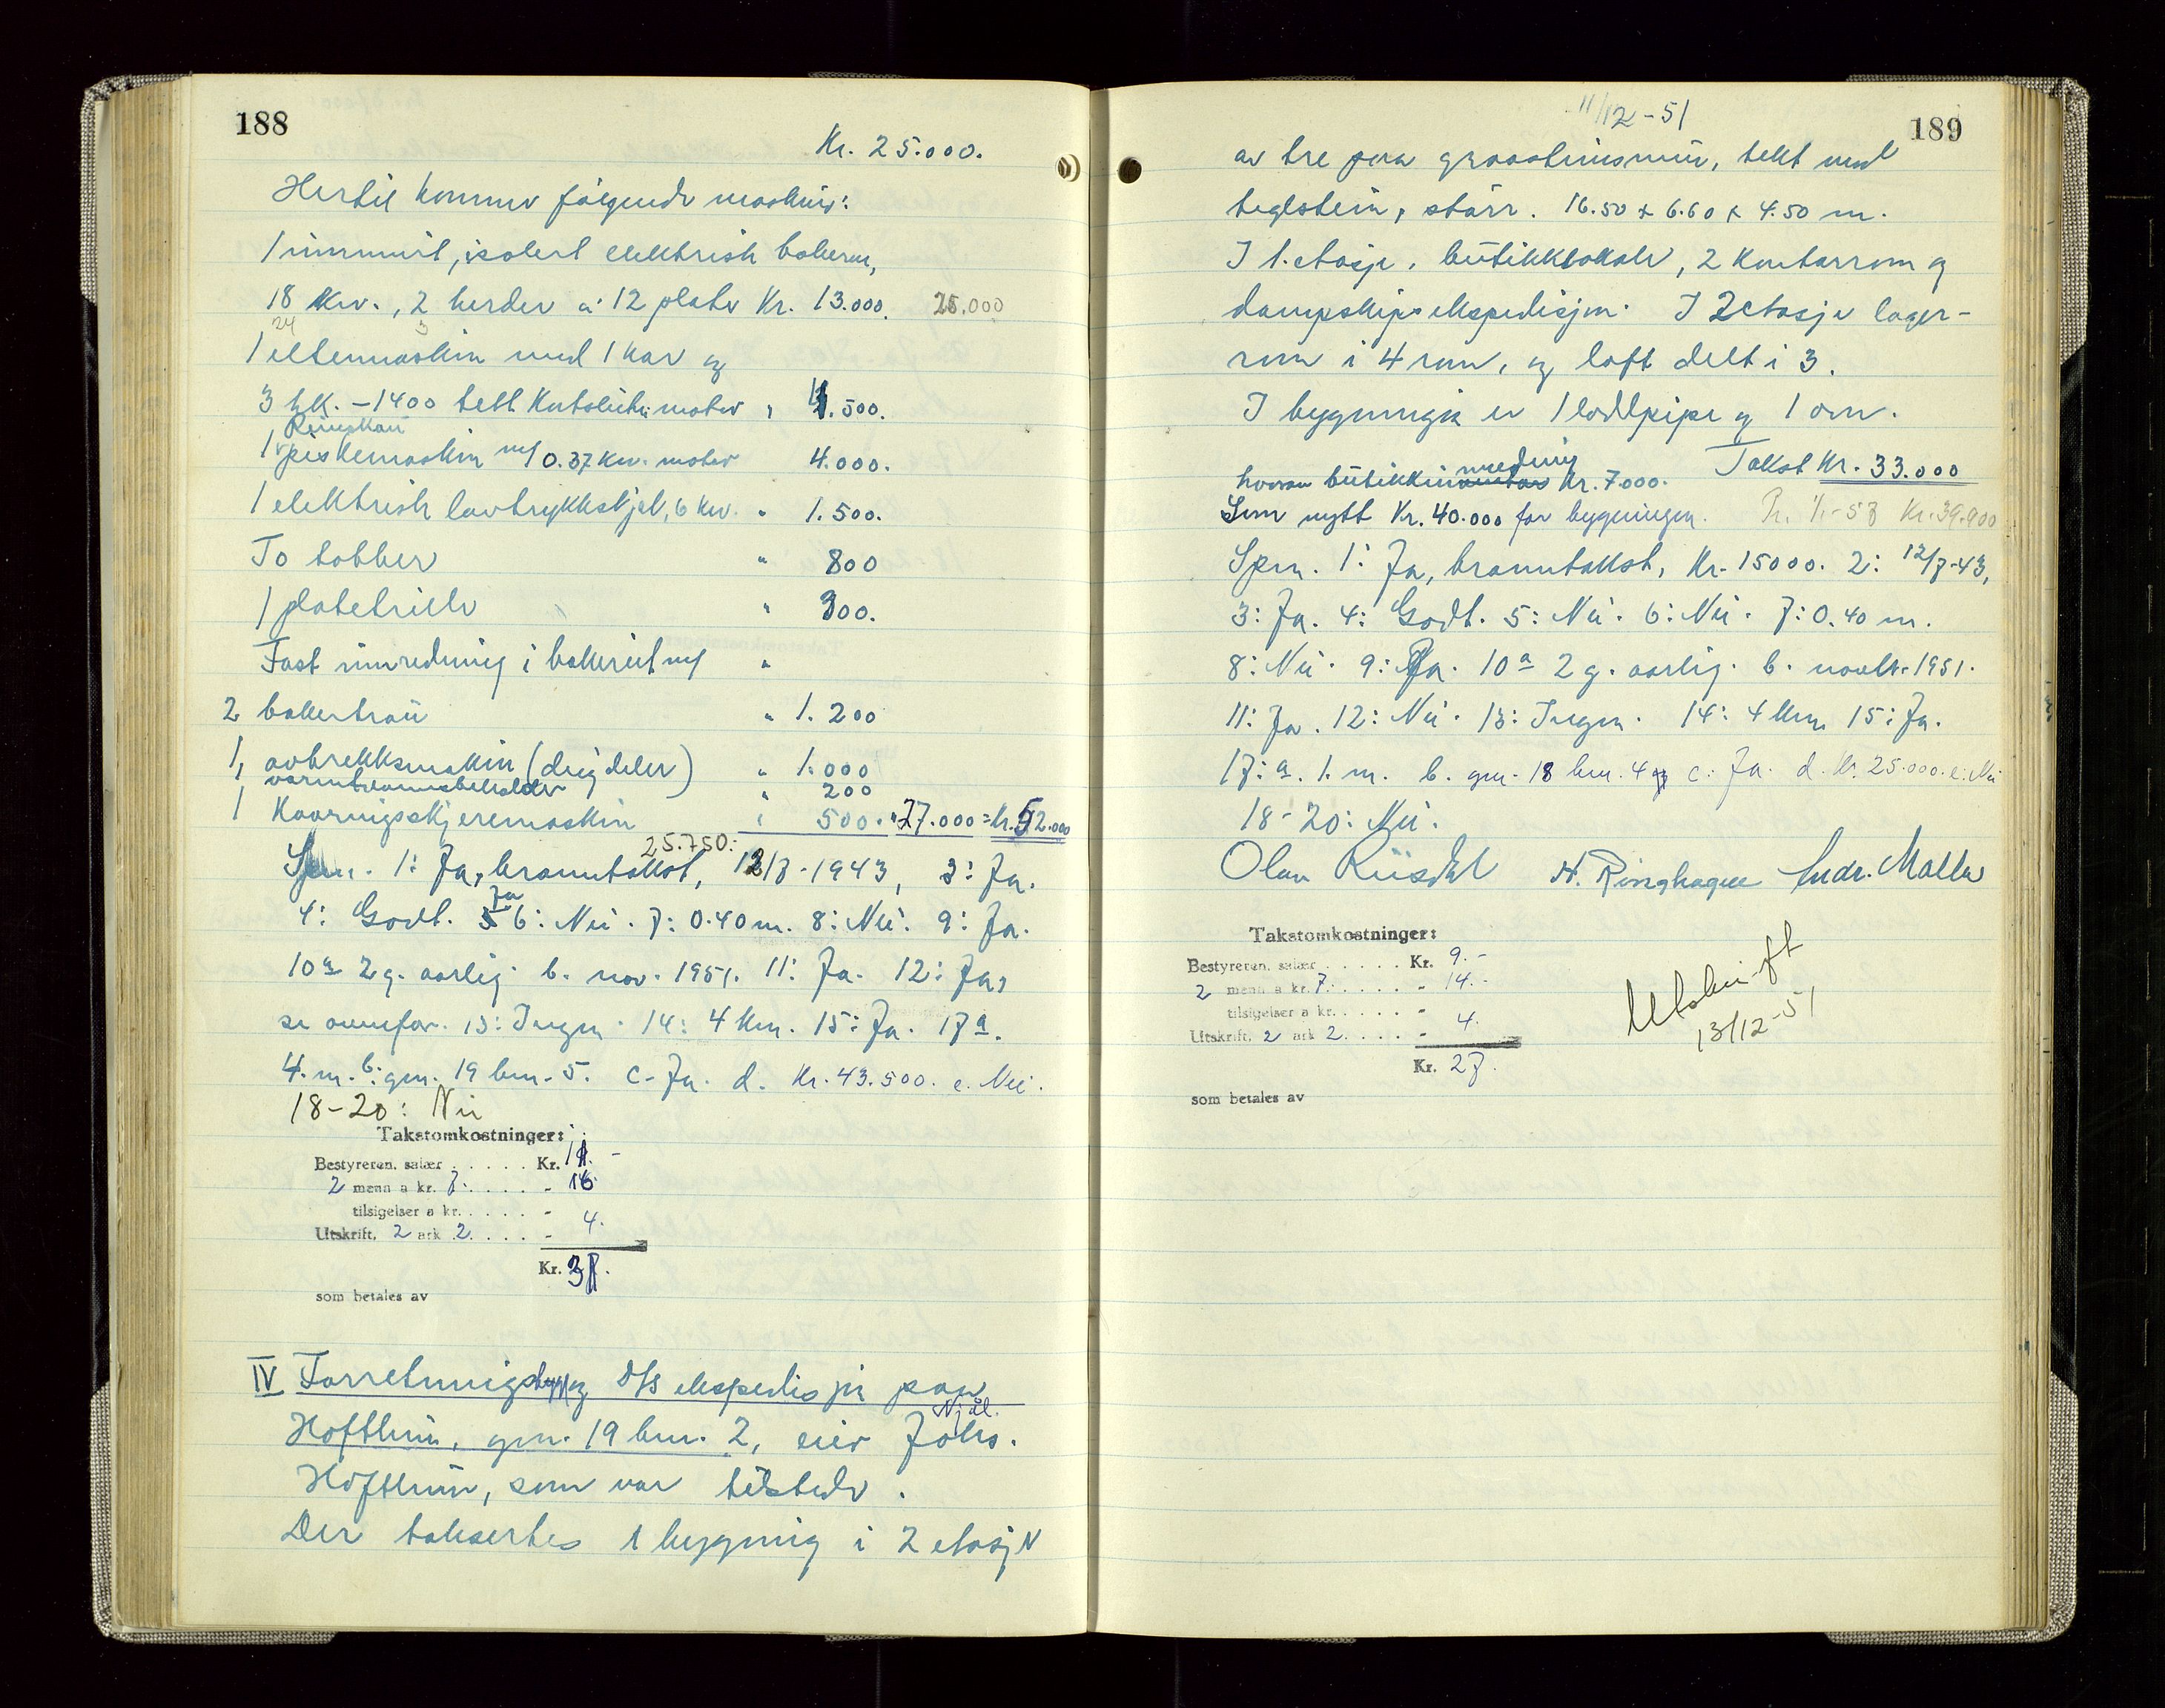 188
Kr. 25.000.
Hertil kommer følgende maskiner:
1 innmurt, isolert elektrisk bakerovn,
18 kw., 2 herder a: 12 plater Kr. 13.000. 25.000
24 3
1 eltemaskin med 1 kar og
3 hk. - 1400 tett kortslutn. motor " 4.500.
1 piskemaskin m/ 0.37 kw. motor 4.000.
1 elektrisk lavtrykkskjel, 6 kw. " 1.500.
To tobber " 800
1 platetralle " 300.
Fast innredning i bakeriet m/ "
2 bakertrau " 1.200
1, avtrekksmaskin (deigdeler) " 1.000
1 varmtvannsbeholder " 200
1 Kavringsskjeremaskin " 500. " 27.000 = Kr. 52.000
25.750:
Spm. 1: Ja, branntakst, 12/7-1943, 3: Ja.
4: Godt. 5 Ja 6: Nei. 7: 0.40 m. 8: Nei. 9: Ja.
10a 2 g. aarlig. b. nov. 1951. 11: Ja. 12: Ja,
se ovenfor. 13: Ingen. 14: 4 km. 15: Ja. 17 a.
4. m. b: gnr. 19 bnr. 5. c. Ja. d. Kr. 43.500. e. Nei.
18-20: Nei
Takstomkostninger:
Bestyreren, salær . . . . . Kr. 11. -
2 menn a kr. 7. . . . . - 16
tilsigelser a kr. . . . . -
Utskrift, 2 ark 2. . . . . - 4.
Kr. 31.
som betales av
IV Forretningsbygg og D/S ekspedisjon paa
Hofthun, gnr. 19 bnr. 2, eier Njål Johs.
Hofthun, som var tilstede.
Der taksertes 1 bygning i 2 etasjer
11/12-51
189
av tre paa graasteinsmur, tekt med
teglstein, størr. 16.50 x 6.60 x 4.50 m.
I 1. etasje, butikklokale, 2 kontorrom og
dampskipsekspedisjon. I 2 etasje lager-
rom i 4 rom, og loft delt i 3.
I bygningen er 1 loddpipe og 1 ovn.
Takst Kr. 33.000
hvorav butikkinnredning Kr. 7.000.
Som nytt Kr. 40.000 for bygningen. Pr. 1/1-58 Kr. 39.900
Spm. 1: Ja, branntakst, Kr. 15000. 2: 12/7-43,
3: Ja. 4: Godt. 5: Nei. 6: Nei. 7: 0.40 m.
8: Nei. 9: Ja. 10a 2 g. aarlig. b. novbr. 1951.
11: Ja. 12: Nei. 13: Ingen. 14: 4 km 15: Ja.
17: a. 1. m. b. gnr. 18 bnr. 4 c: Ja. d. Kr. 25.000. e: Nei
18-20: Nei.
Olav H. Ringhagen Andr.
Takstomkostninger:
Bestyreren, salær . . . . . Kr. 9.-
2 menn a kr. 7. . . . . - 14.-
tilsigelser a kr. . . . . -
Utskrift, 2 ark 2. . . . . - 4.
Kr. 27.
som betales av
Utskrift
13/12-51